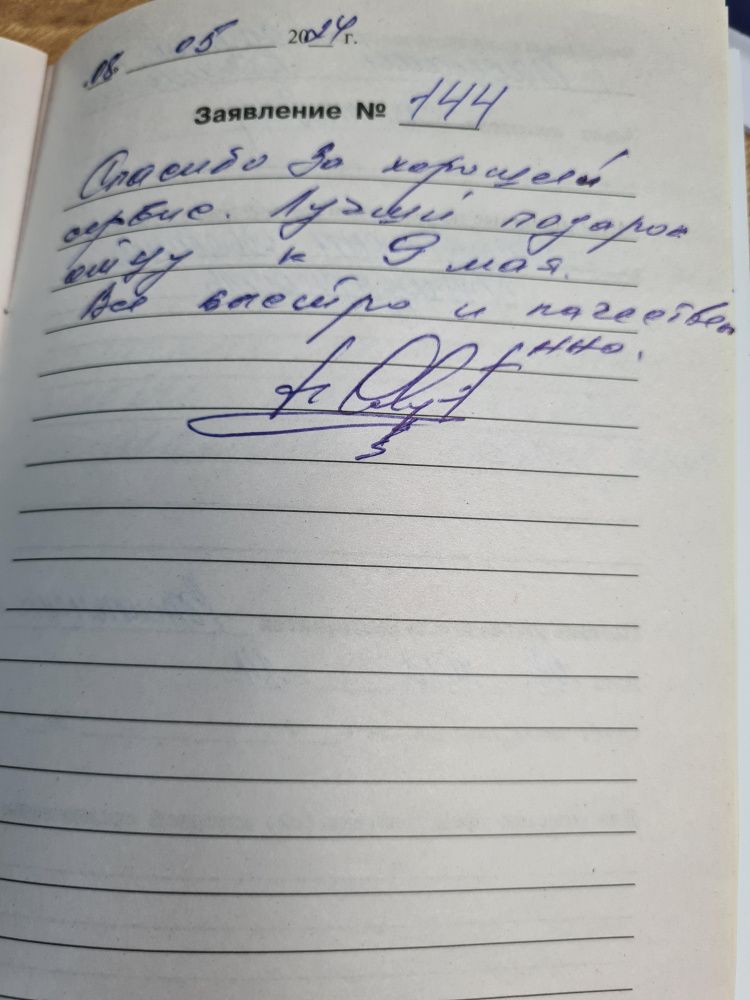 08. 05 2024 г.
Заявление № 144
Спасибо за хороший
сервис. Лучший подарок
отцу к 9 мая.
Все быстро и качествен
нно.